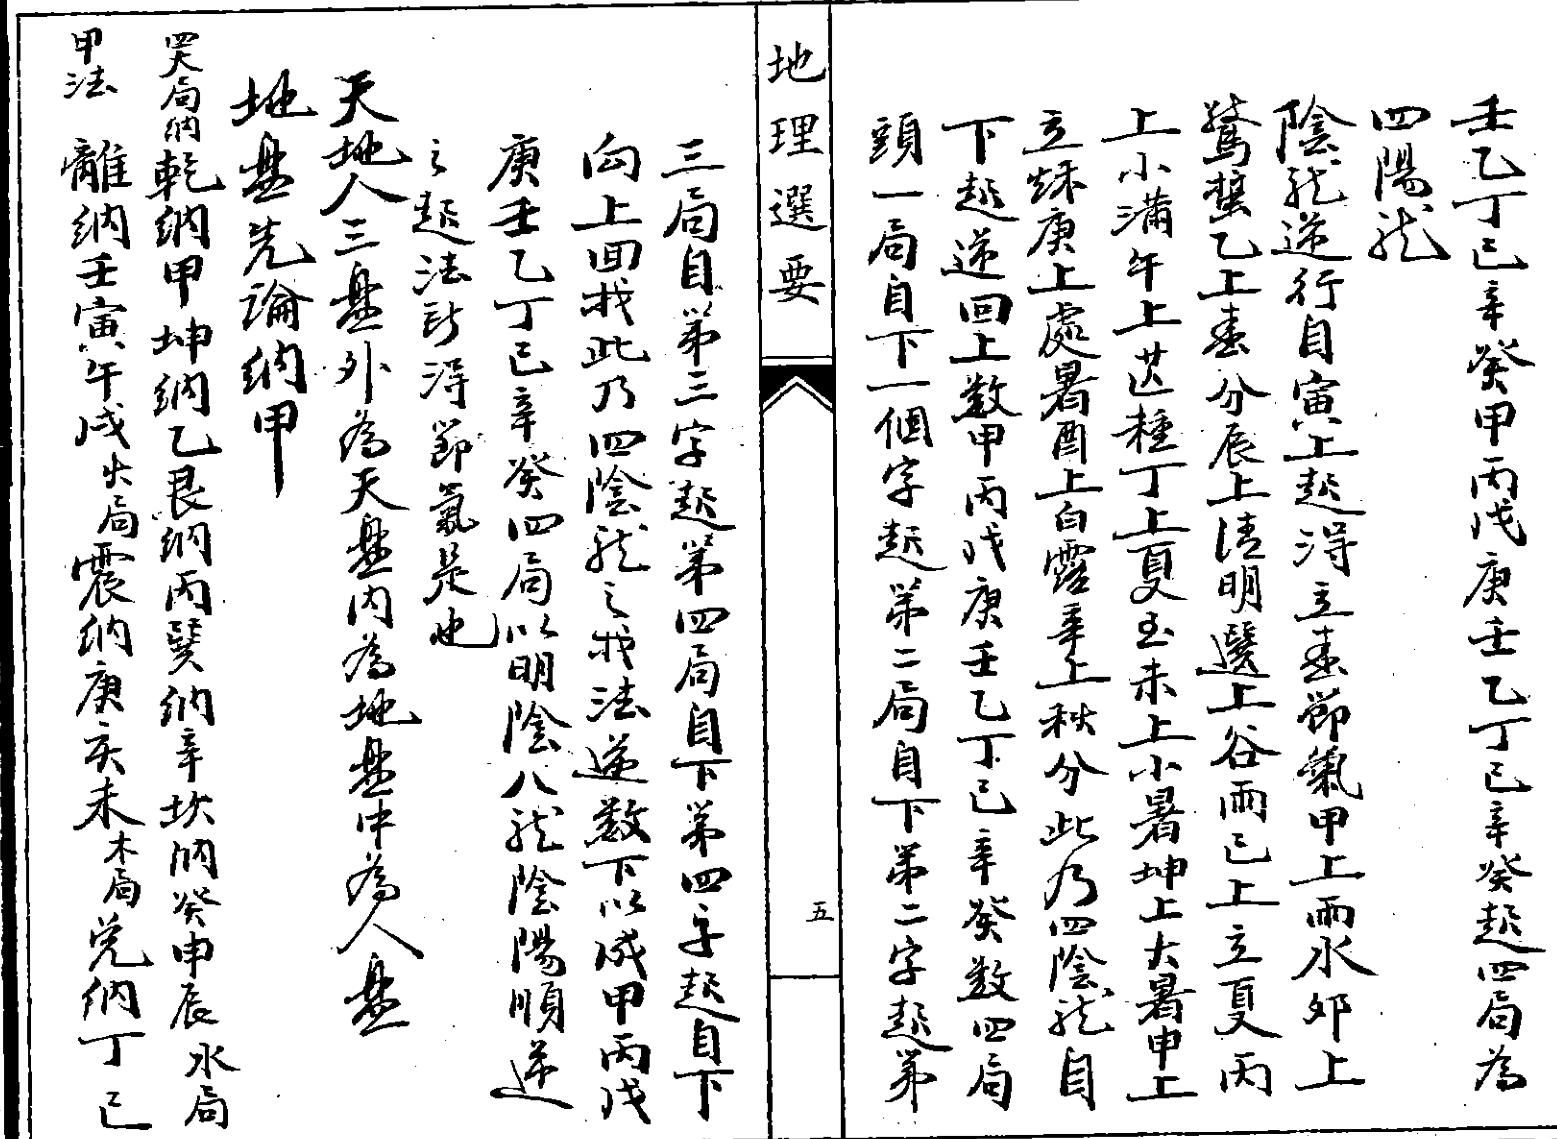 壬乙丁己辛癸甲丙戊庚壬乙丁己辛癸起四局為
四陽龍
陰龍逆行自寅上起淂立春節氣甲上雨水夘上
驚蟄乙上春分辰上清明巽上谷雨巳上立夏丙
上小滿午上芒種丁上夏至未上小暑坤上大暑申上
立秌庚上處暑酉上白露辛上秋分此乃四陰龍自
下起逆回上数甲丙戊庚壬乙丁己辛癸数四局
頭一局自下一個字起第二局自下第二字起第
地理選要
五
三局自第三字起第四局自下第四字起自下
向上回找此乃四陰龍之找法逆数下以成甲丙戊
庚壬乙丁己辛癸四局以明陰八龍陰陽順逆
之起法訪淂節氣是也
天地人三盤外為天盤内為地盤中為人盤
地盤先論納甲
罘局納甲法
乾納甲坤納乙艮納丙巽納辛坎納癸申辰水局
離納壬寅午戌火局震納庚亥未木局兌納丁巳